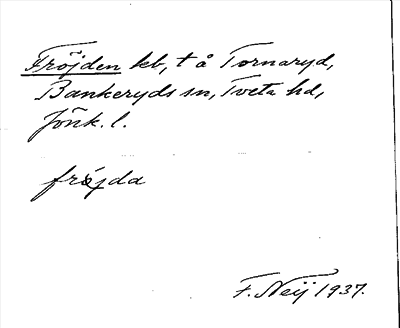 Fröjden lkb, t å Tornaryd,
Bankeryds sn, Tveta hd,
Jönk. l.
fröjda
F. Neij 1937.